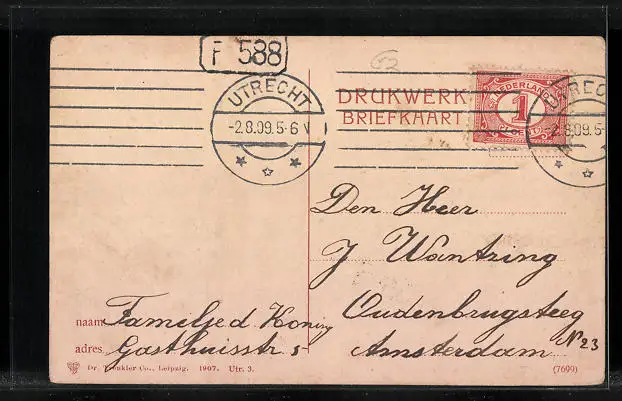 F 588
UTRECHT
-2.8.09.5-6 V
DRUKWERK
BRIEFKAART
NEDERLAND
1
UTRECHT
-2.8.09.5-
Den Heer
J Wantring
Oudenbrugsteeg
N 23
Amsterdam
naam Famelje d Koning
adres Gasthuisstr 5
Dr. Trenkler Co., Leipzig. 1907. Utr. 3.
(7699)